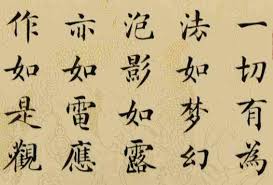 一切有為
法如梦幻
泡影如露
亦如電應
作如是觀